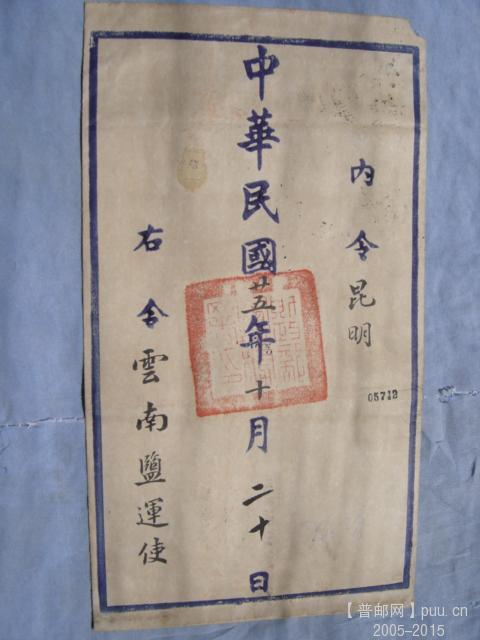 内令昆明
05712
中華民國廿五年十月二十日
右令雲南鹽運使
【普邮网】puu.cn
2005-2015